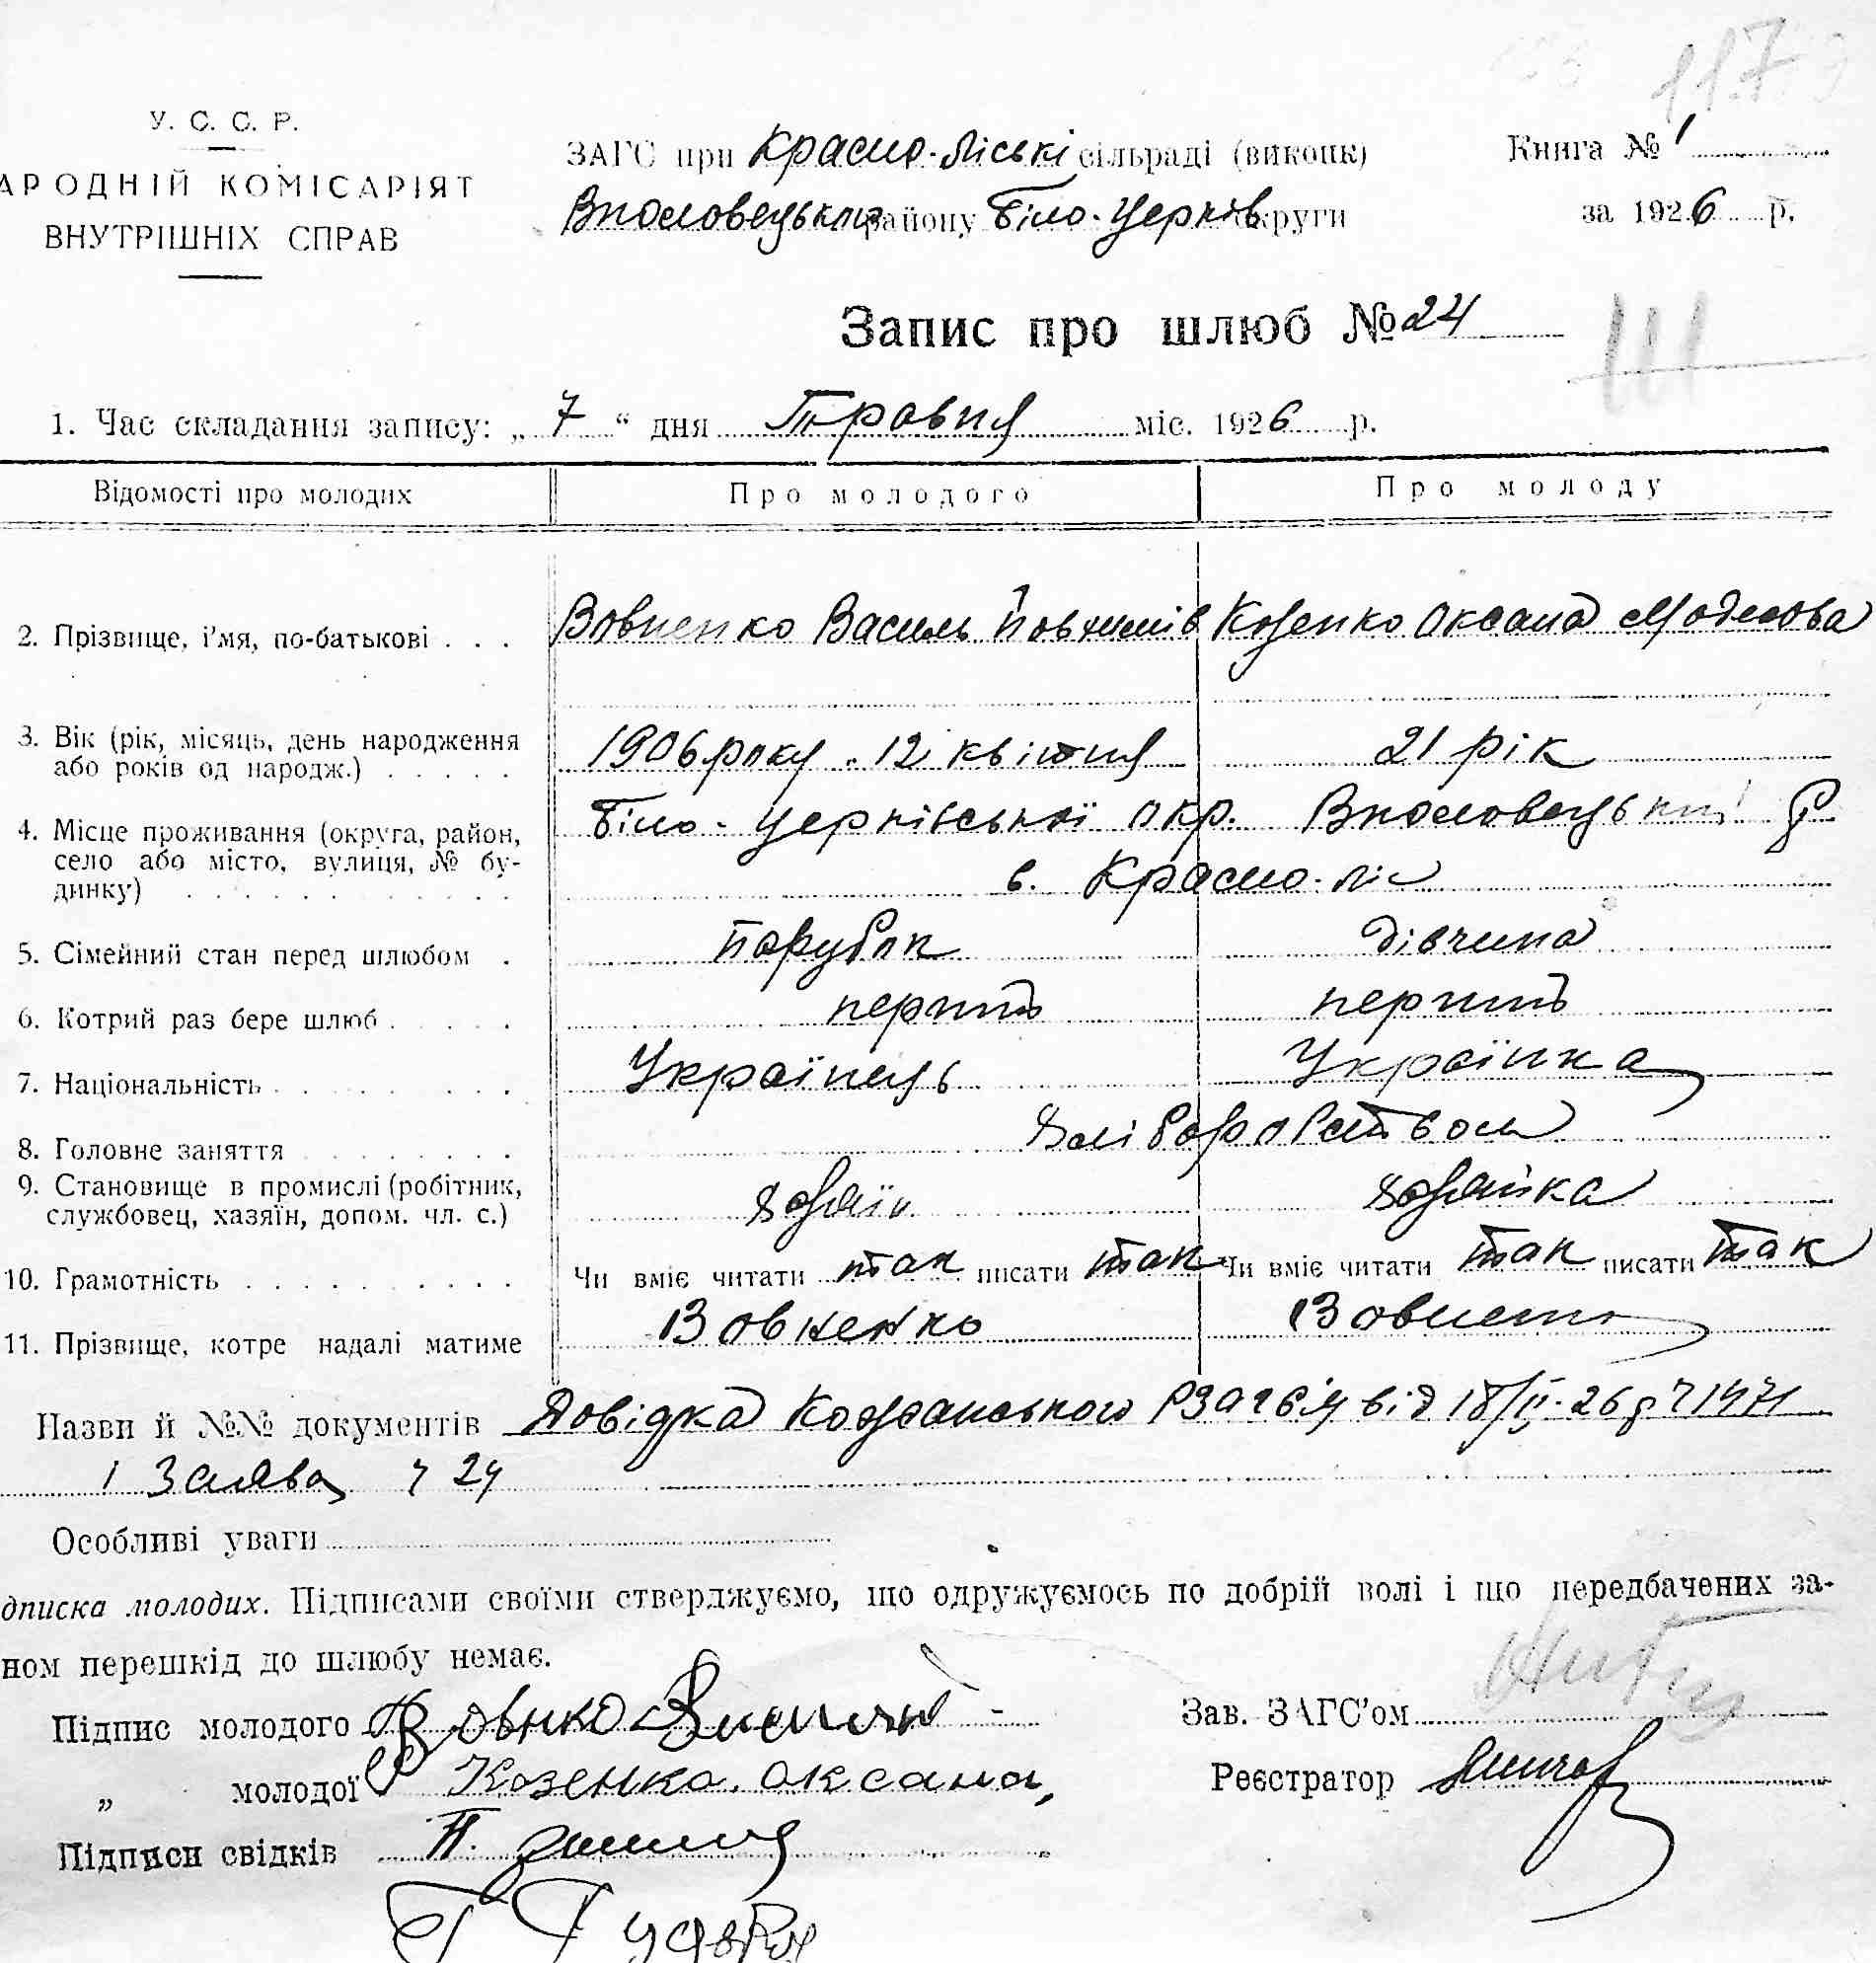 117
У. С. С. Р.
АРОДНІЙ КОМІСАРІЯТ
ВНУТРІШНІХ СПРАВ
ЗАГС при Красно-Ліські сільраді (виконк)
району Біло-Церків округи
Книга № 1
за 1926 р.
Запис про шлюб № 24
1. Час складання запису: „ 7 “ дня Травня міс. 1926 р.
Відомості про молодих Про молодого Про молоду
2. Прізвище, і'мя, по-батькові . . . Вовненко Василь Козенко Оксана
3. Вік (рік, місяць, день народження
або років од народж.) . . . . . 1906 року 12 квітня 21 рік
4. Місце проживання (округа, район, Біло-Церківської окр. р
село або місто, вулиця, № бу-
динку) . . . . . . . . . . . . с. Красно-ліс
5. Сімейний стан перед шлюбом . Парубок дівчина
6. Котрий раз бере шлюб . . . . перший перший
7. Національність . . . . . . . . Українець Українка
8. Головне заняття . . . . . . . . Хліборобством
9. Становище в промислі (робітник,
службовец, хазяїн, допом. чл. с.) хозяїн хозяйка
10. Грамотність . . . . . . . . . . Чи вміє читати так писати так Чи вміє читати так писати так
11. Прізвище, котре надалі матиме Вовненко Вовненко
Назви й №№ документів Довідка Кожанського від 18/II-26 р ч 1471
і Заява ч 24
Особливі уваги
дписка молодих. Підписами своїми стверджуємо, що одружуємось по добрій волі і що передбачених за-
ном перешкід до шлюбу немає.
Підпис молодого Вовнко
„ молодої Козенко Оксана,
Підписи свідків П.
Зав. ЗАГС’ом
Реєстратор